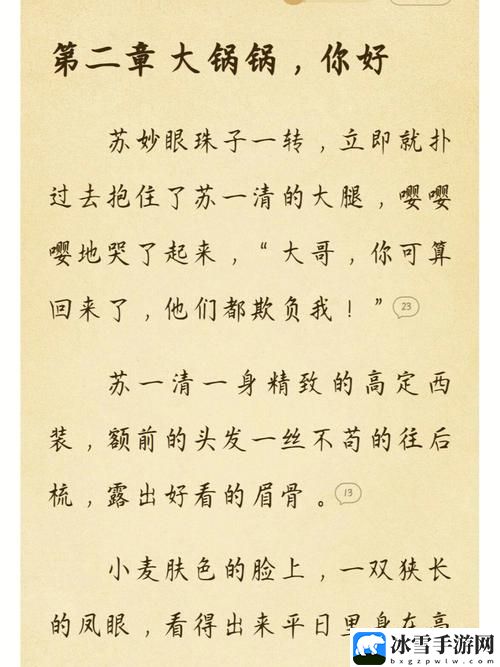 第二章 大锅锅，你好
苏妙眼珠子一转，立即就扑
过去抱住了苏一清的大腿，嘤嘤
嘤地哭了起来，“大哥，你可算
回来了，他们都欺负我！”23
苏一清一身精致的高定西
装，额前的头发一丝不苟的往后
梳，露出好看的眉骨。13
小麦肤色的脸上，一双狭长
的凤眼，看得出来平日里身在高
冰雪手游网
bxgzpwlw.com